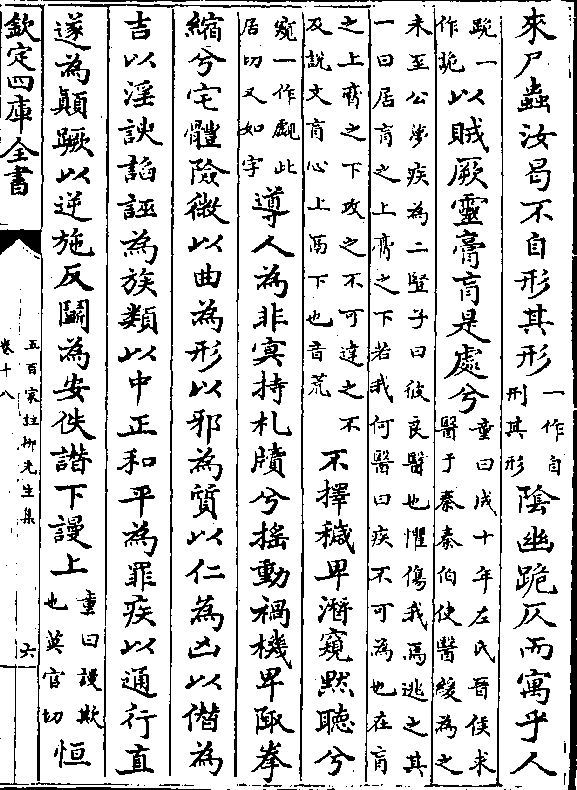 來尸蟲汝曷不自形其形一作自刑其形陰幽跪仄而寓乎人
跪一作詭以賊厥靈膏肓是處兮童曰成十年左氏晉侯求醫于秦秦伯使醫緩為之
未至公夢疾為二豎子曰彼良醫也懼傷我焉逃之其
一曰居肓之上膏之下若我何醫曰疾不可為也在肓
之上膏之下攻之不可達之不及説文肓心上鬲下也音荒不擇穢卑潛窺默聽兮
窺一作覷此居切又如字導人為非冥持札牘兮搖動禍機卑陬拳
縮兮宅體險微以曲為形以邪為質以仁為凶以僭為
吉以淫諛諂誣為族類以中正和平為罪疾以通行直
遂為顛蹶以逆施反鬬為安佚譖下謾上童曰謾欺也莫官切恒
欽定四庫全書
五百家註柳先生集
卷十八
六